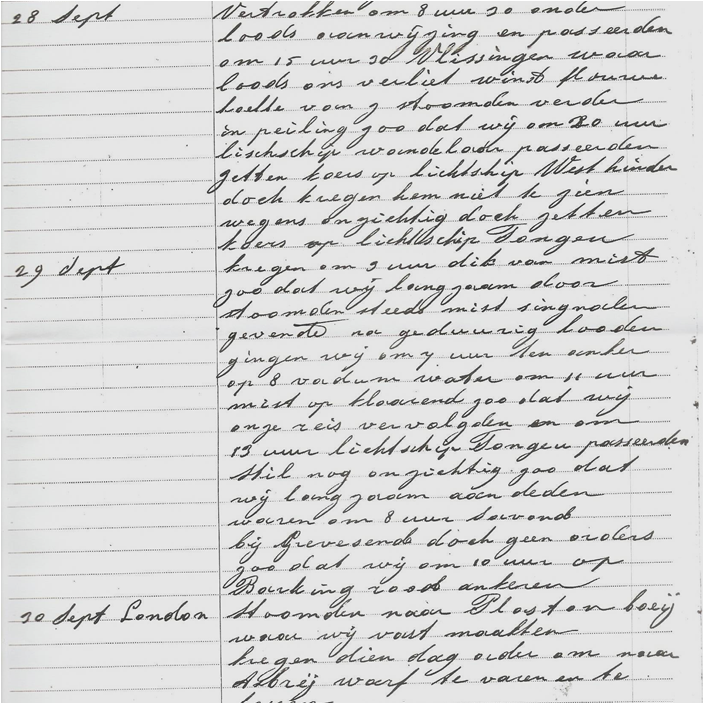 28 Sept Vertrokken om 8 uur 30 onder
loods aanwijzing en passeerden
om 15 uur 30 Vlissingen waar
loods ons verliet wind flouwe
koelte van Z stoomden verder
in peiling zoo dat wij om 20 uur
lischschip wandelaar passeerden
zetten koers op lichtship West hinder
doch kregen hem niet te zien
wegens onzichtig doch zetten
koers op lichtschip Tongeu
29 Sept kregen om 3 uur dik van mist
zoo dat wij langzaam door
stoomden steeds mist singnalen
gevende na geduurig looden
gingen wij om 7 uur ten anker
op 8 vadum water om 11 uur
mist op klaarend zoo dat wij
onze reis vervolgden en om
13 uur lichtschip Tongeu passeerden
stil nog onzichtig zoo dat
wij langzaam aan deden
waren om 8 uur Savonds
bij Grevesend doch geen orders
zoo dat wij om 10 uur op
Barking rood ankeren
30 Sept London stoomden naar boeij
waar wij vast maakten
kregen dien dag order om naar
warf te varen en te